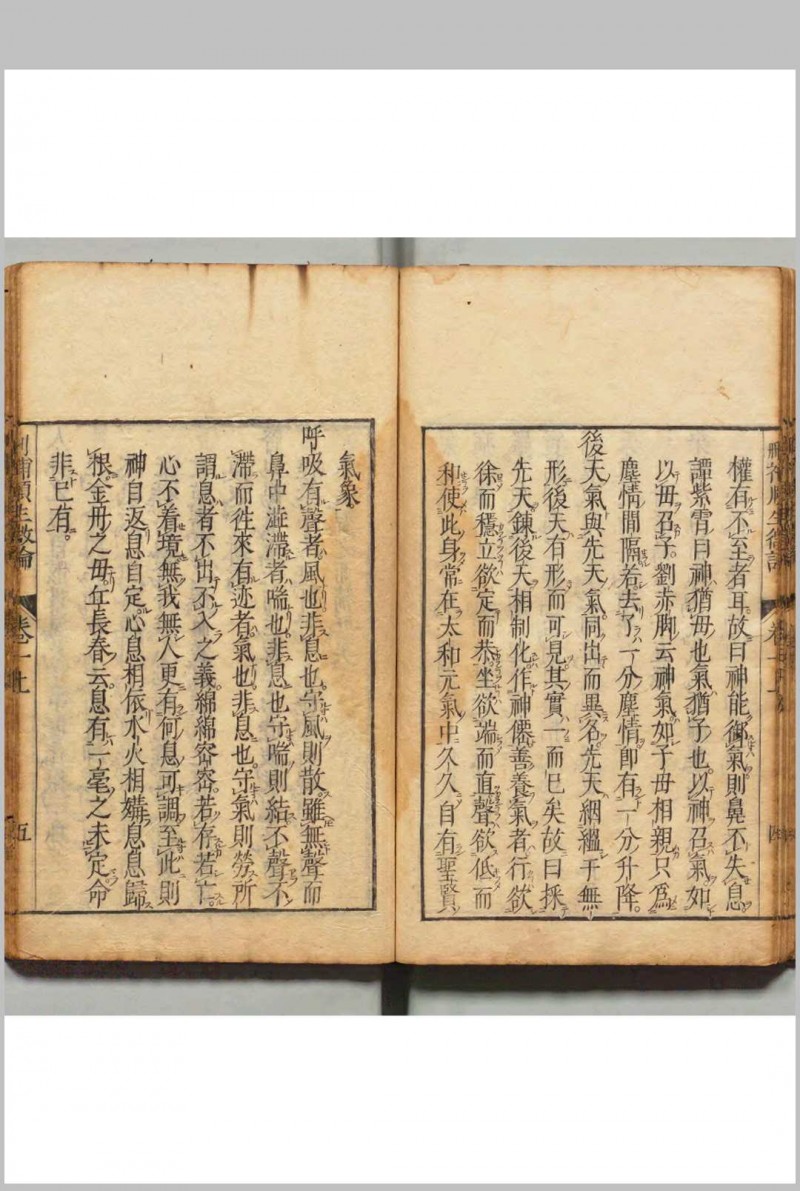 權有不至者耳故曰神能御氣則鼻不失息
譚紫霄曰神猶母也氣猶子也以神召氣如
以母召子劉赤脚云神氣如子母相親只爲
塵情間隔若去了一分塵情即有一分升降
後天氣與先天氣同出而異名先天絪縕于無
形後天有形而可見其實一而已矣故曰採
先天鍊後天相制化作神僊善養氣者行欲
徐而穩立欲定而恭坐欲端而直聲欲低而
和使此身常在太和元氣中久久自有聖賢
氣象
呼吸有聲者風也非息也守風則散雖無聲而
鼻中澁滯者喘也非息也守喘則結不聲不
滯而徃來有迹者氣也非息也守氣則勞所
謂息者不出不入之義綿綿宻宻若存若亡
心不着境無我無人更有何息可調至此則
神自返息自定心息相依水火相媾息息歸
根金丹之母丘長春云息有一毫之未定命
非已有。
攝生微論
卷一
五